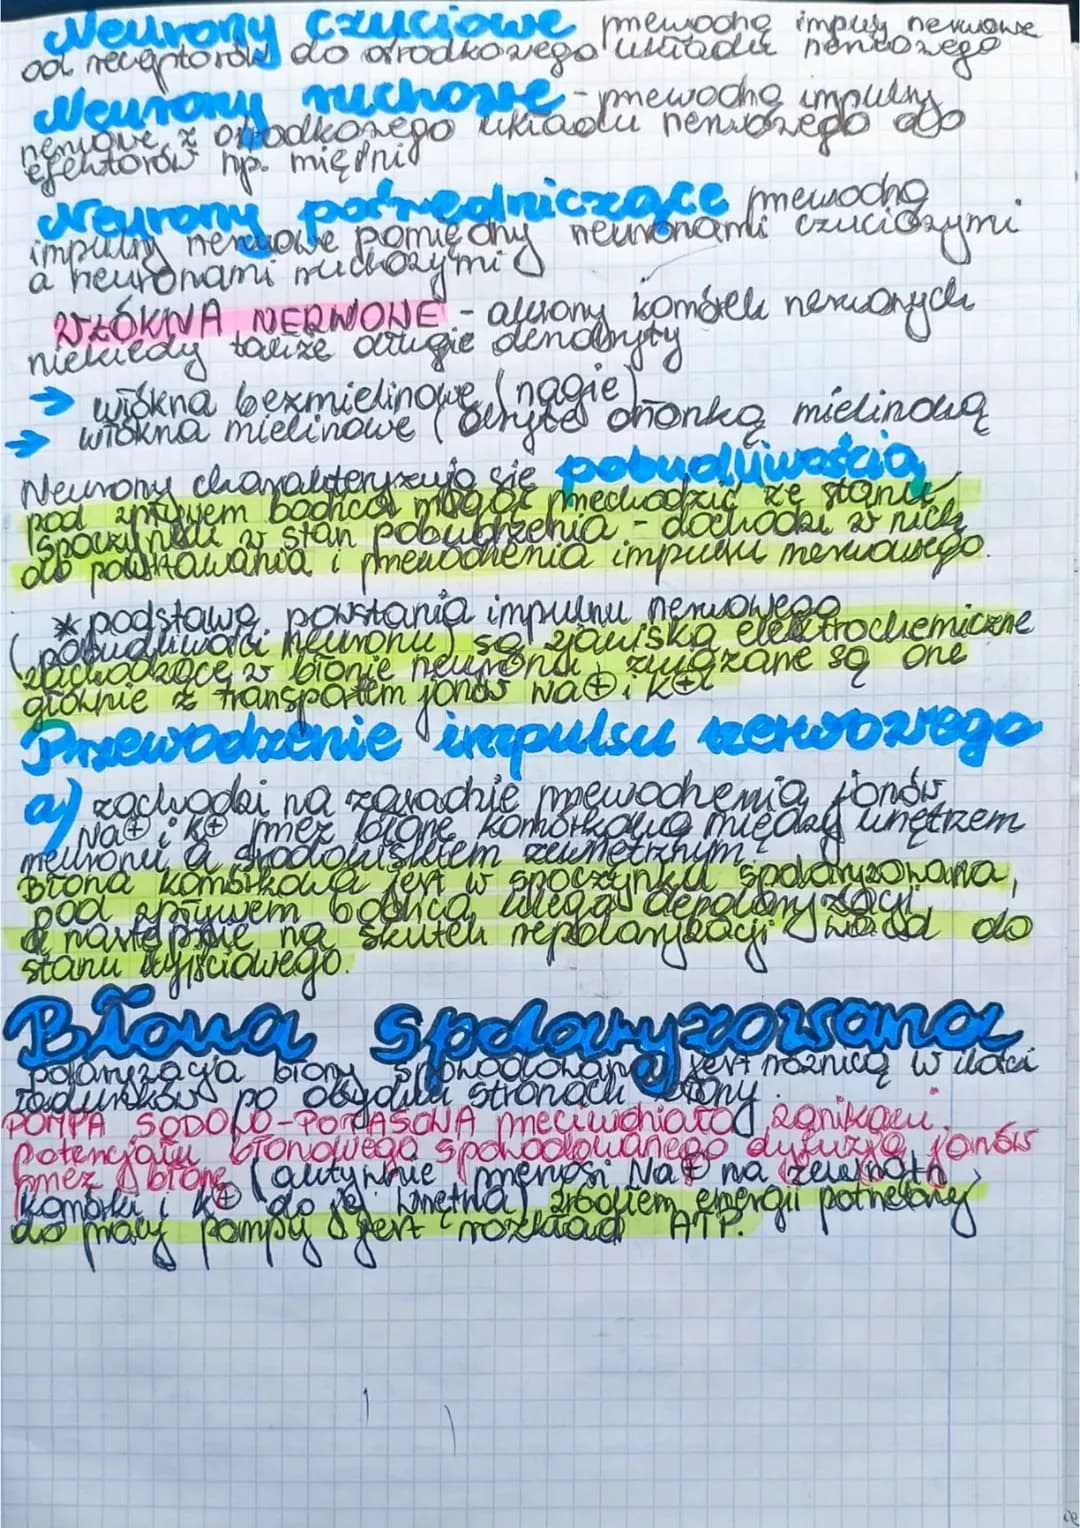 Neurony czuciowe przewodzą impulsy nerwowe
od receptorów do ośrodkowego układu nerwowego
Neurony ruchowe - przewodzą impulsy
nerwowe z ośrodkowego układu nerwowego do
efektorów np. mięśni
Neurony pośredniczące przewodzą
impulsy nerwowe pomiędzy neuronami czuciowymi
a neuronami ruchowymi
WŁÓKNA NERWOWE - aksony komórek nerwowych
niekiedy także długie dendryty
→ włókna bezmielinowe (nagie)
→ włókna mielinowe (okryte osłonką mielinową
Neurony charakteryzują się pobudliwością
pod wpływem bodźca mogą przechodzić ze stanu
spoczynku w stan pobudzenia - dochodzi w nich
do powstawania i przewodzenia impulsu nerwowego.
* podstawą powstania impulsu nerwowego
(pobudliwości neuronu) są zjawiska elektrochemiczne
zachodzące w błonie neuronu, związane są one
głównie z transportem jonów Na⊕ i K⊕
Przewodzenie impulsu nerwowego
a) zachodzi na zasadzie przewodzenia jonów
Na⊕ i K⊕ przez błonę komórkową między wnętrzem
neuronu a środowiskiem zewnętrznym.
Błona komórkowa jest w spoczynku spolaryzowana,
pod wpływem bodźca ulega depolaryzacji
a następnie na skutek repolaryzacji wraca do
stanu wyjściowego.
Błona spolaryzowana
polaryzacja błony spowodowana jest różnicą w ilości
ładunków po obydwu stronach błony.
POMPA SODOWO-POTASOWA przeciwdziała zanikowi
potencjału błonowego spowodowanego dyfuzją jonów
przez błonę (aktywnie przenosi Na⊕ na zewnątrz
komórki i K⊕ do jej wnętrza) źródłem energii potrzebnej
do pracy pompy jest rozkład ATP.